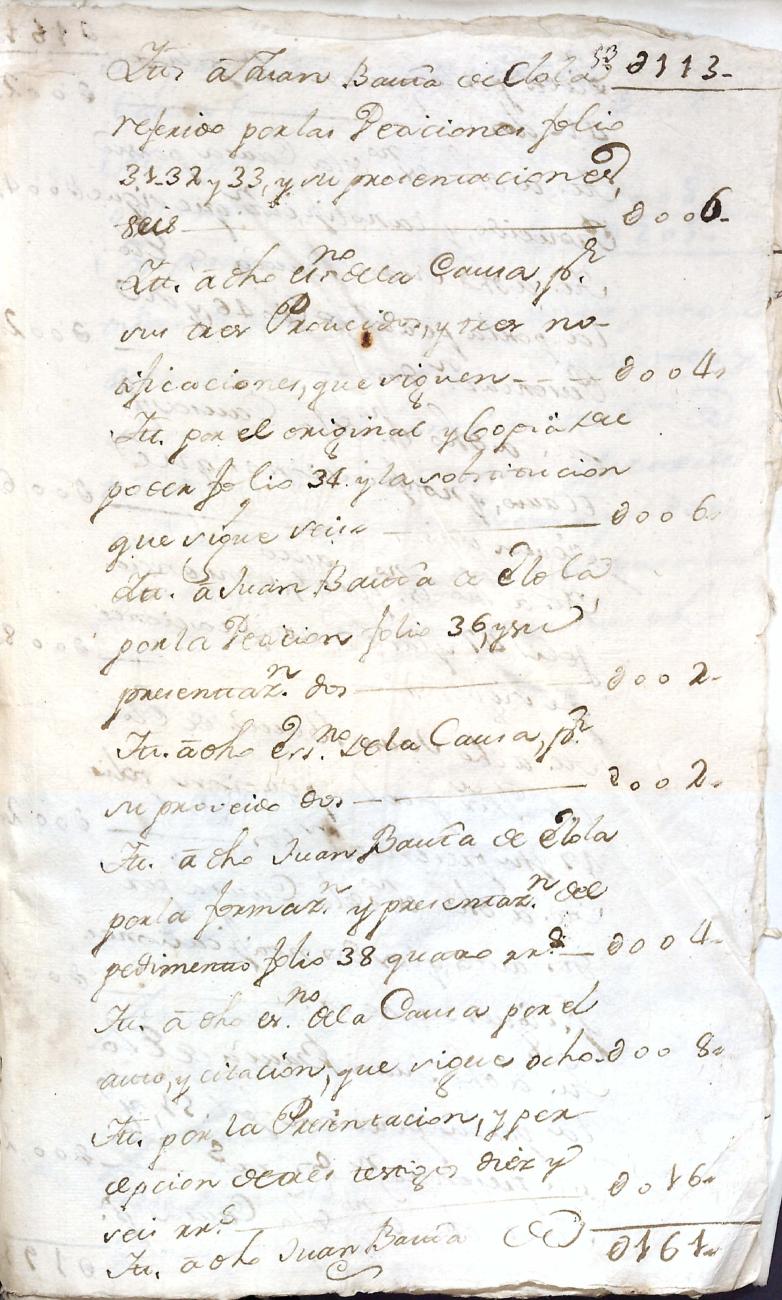 Itt. â Juan Bauta. de Elola 0113-
referido por las Peticiones folio
31-32 y 33, y su presentacion es,
seis 0006-
Itt. â dho esno. de la Causa, pr.
sus tres Proueidos, y tres no-
tificaciones, que siguen - - - 0004.
Itt. por el original y Copia del
poder folio 34. y la sostitucion
que sigue seis 0006.
Itt. â Juan Bauta. de Elola
por la Peticion folio 36, y su
presentazn. dos 0002-
Itt. â dho Essno. de la Causa, pr.
su proueido dos 0002.
Itt. â dho Juan Bauta. de Elola
por la formazn. y presentazn. del
pedimento folio 38 quatro rrs. 0004-
Itt. â dho esno. de la Causa por el
auto, y citacion, que sigue ocho- 0008.
Itt. por la Presentacion, y per-
cepcion de tres testigos diéz y
seis rrs. 0016.
Itt. â dho Juan Bauta. 0161.